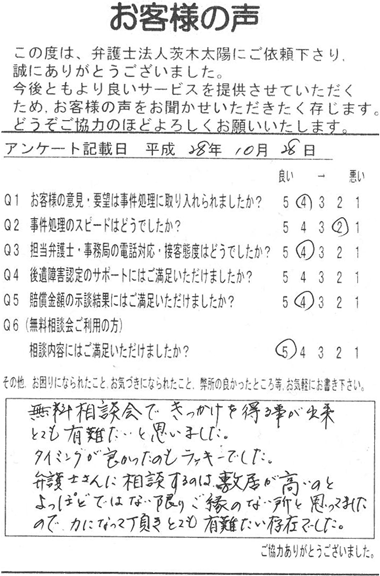 お客様の声
この度は、弁護士法人茨木太陽にご依頼下さり、
誠にありがとうございました。
今後ともより良いサービスを提供させていただく
ため、お客様の声をお聞かせいただきたく存じます。
どうぞご協力のほどよろしくお願いいたします。
アンケート記載日 平成 28年 10月 28日
良い → 悪い
Q1 お客様の意見・要望は事件処理に取り入れられましたか? 5 4 3 2 1
Q2 事件処理のスピードはどうでしたか? 5 4 3 2 1
Q3 担当弁護士・事務局の電話対応・接客態度はどうでしたか? 5 4 3 2 1
Q4 後遺障害認定のサポートにはご満足いただけましたか? 5 4 3 2 1
Q5 賠償金額の示談結果にはご満足いただけましたか? 5 4 3 2 1
Q6(無料相談会ご利用の方)
相談内容にはご満足いただけましたか? 5 4 3 2 1
その他、お困りになられたこと、お気づきになられたこと、弊所の良かったところ等、お気軽にお書き下さい。
無料相談会できっかけを得る事が出来
とても有難たいと思いました。
タイミングが良かったのもラッキーでした。
弁護士さんに相談するのは、敷居が高いのと
よっぽどではない限りご縁のない所と思ってました
ので、力になって頂きとても有難たい存在でした。
ご協力ありがとうございました。